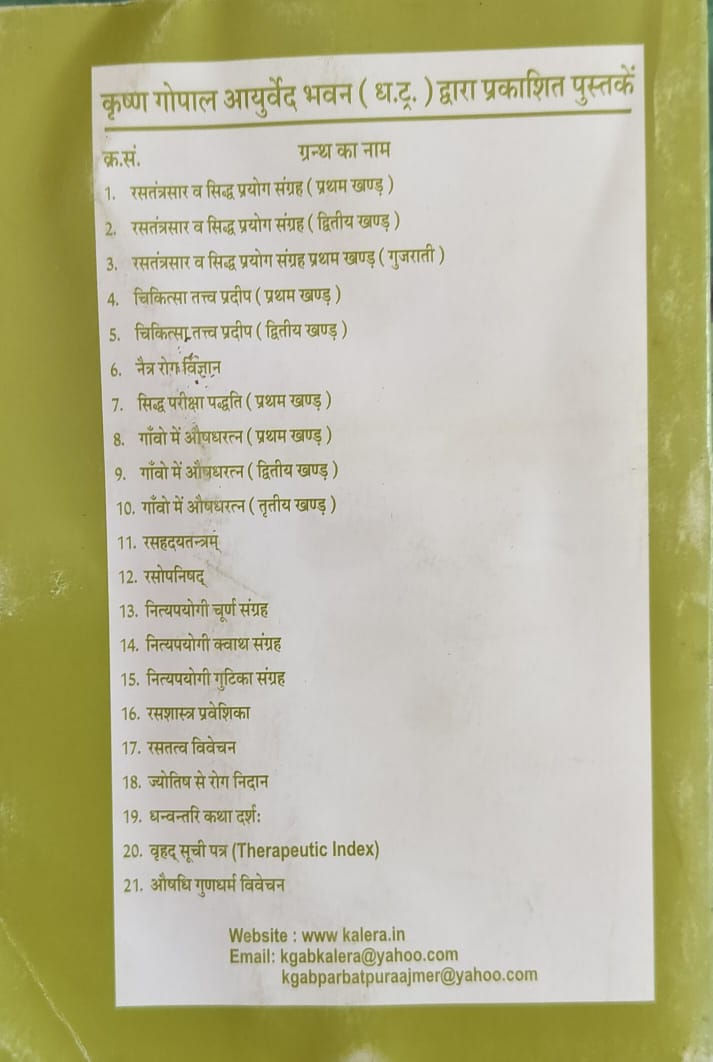 कृष्ण गोपाल आयुर्वेद भवन ( ध.ट्र. ) द्वारा प्रकाशित पुस्तकें
क्र.सं. ग्रन्थ का नाम
1. रसतंत्रसार व सिद्ध प्रयोग संग्रह ( प्रथम खण्ड़ )
2. रसतंत्रसार व सिद्ध प्रयोग संग्रह ( द्वितीय खण्ड़ )
3. रसतंत्रसार व सिद्ध प्रयोग संग्रह प्रथम खण्ड़ ( गुजराती )
4. चिकित्सा तत्त्व प्रदीप ( प्रथम खण्ड़ )
5. चिकित्सा तत्त्व प्रदीप ( द्वितीय खण्ड़ )
6. नैत्र रोग विज्ञान
7. सिद्ध परीक्षा पद्धति ( प्रथम खण्ड़ )
8. गाँवो में औषधरत्न ( प्रथम खण्ड़ )
9. गाँवो में औषधरत्न ( द्वितीय खण्ड़ )
10. गाँवो में औषधरत्न ( तृतीय खण्ड़ )
11. रसहदयतन्त्रम्
12. रसोपनिषद्
13. नित्यपयोगी चूर्ण संग्रह
14. नित्यपयोगी क्वाथ संग्रह
15. नित्यपयोगी गुटिका संग्रह
16. रसशास्त्र प्रवेशिका
17. रसतत्व विवेचन
18. ज्योतिष से रोग निदान
19. धन्वन्तरि कथा दर्शः
20. वृहद् सूची पत्र (Therapeutic Index)
21. औषधि गुणधर्म विवेचन
Website : www kalera.in
Email: kgabkalera@yahoo.com
kgabparbatpuraajmer@yahoo.com